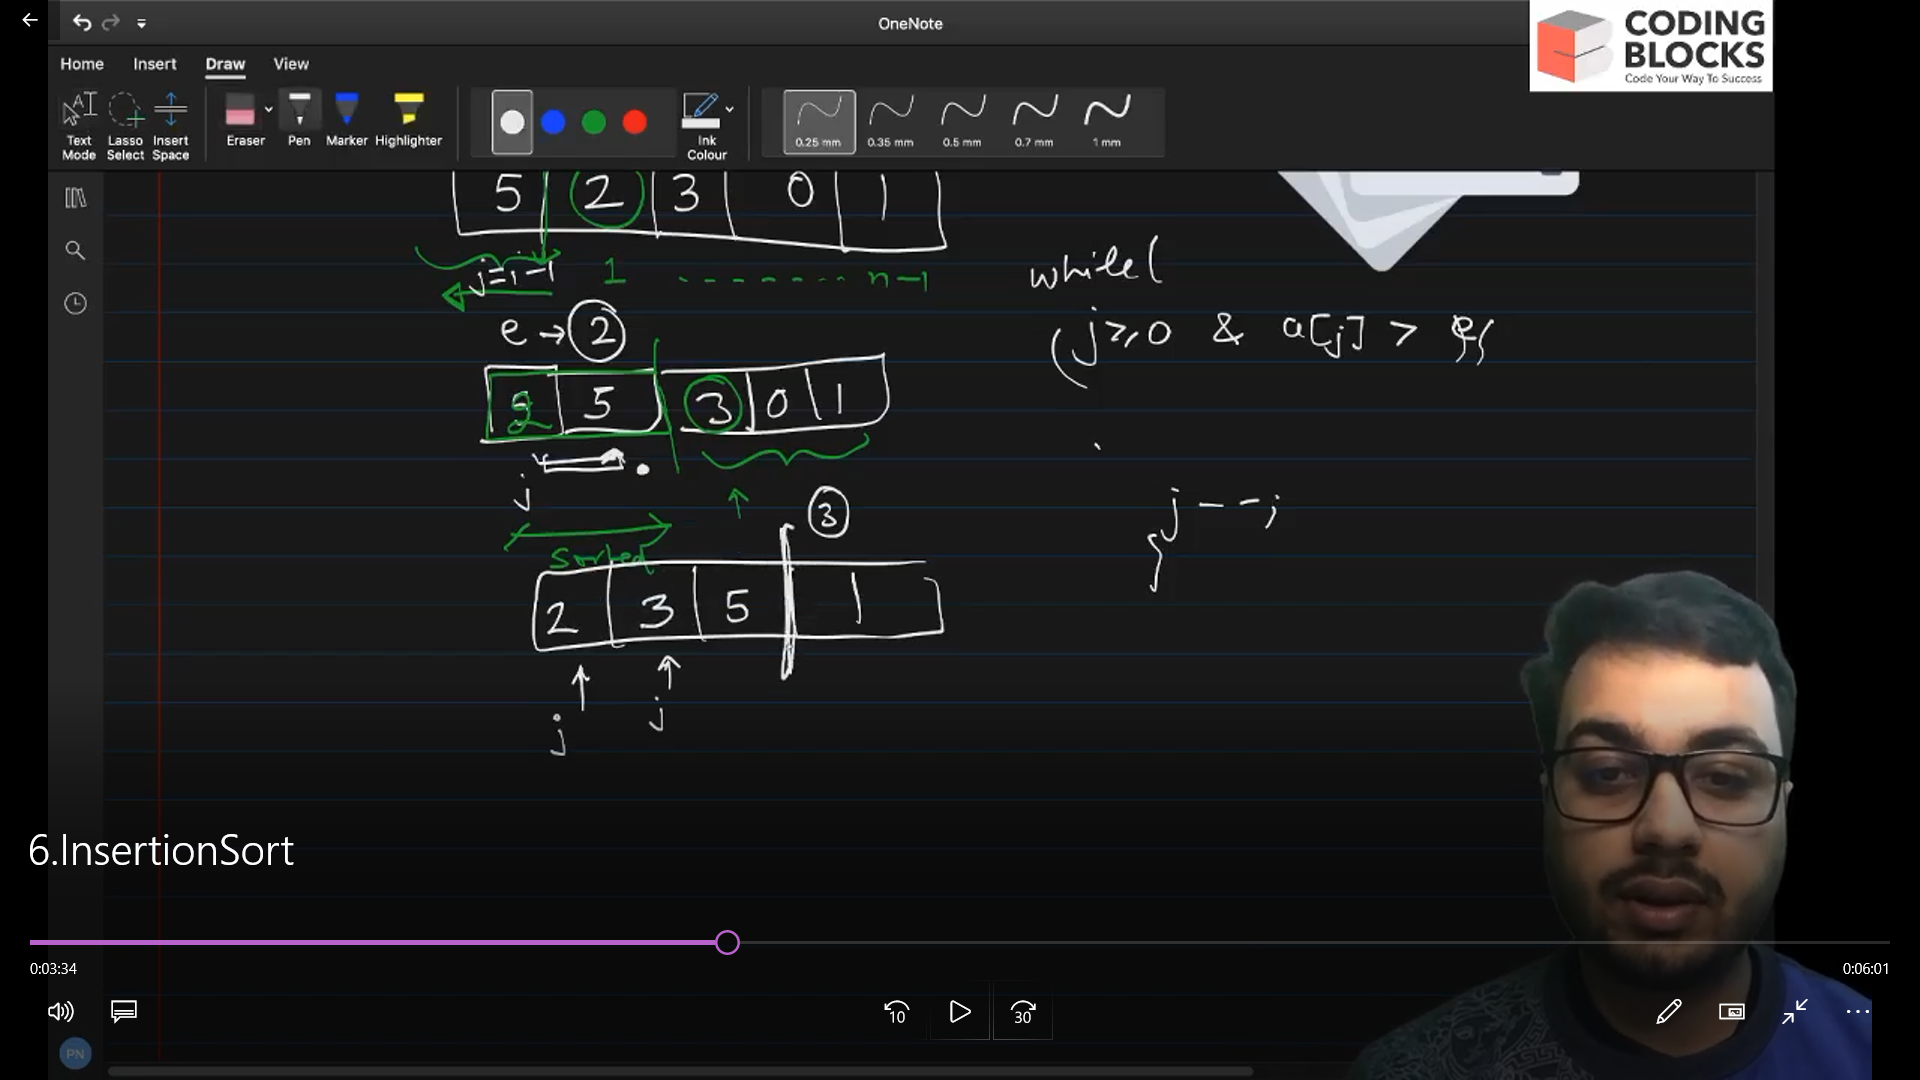 OneNote
CODING
BLOCKS
Code Your Way To Success
Home Insert Draw View
Text Mode
Lasso Select
Insert Space
Eraser
Pen
Marker
Highlighter
Ink Colour
0.25 mm
0.35 mm
0.5 mm
0.7 mm
1 mm
5 2 3 0 1
j=i-1 1 - - - - - - - n-1
e → 2
2 5 3 0 1
j
3
sorted
2 3 5 1
j j
while(
(j≥0 & a[j] > e
j--;
}
6.InsertionSort
0:03:34
0:06:01
10
30
PN